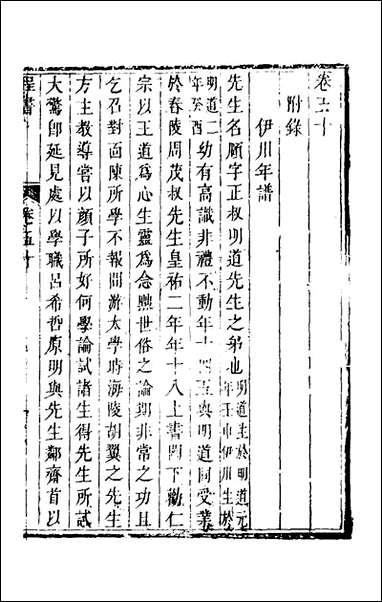 卷五十
附錄
伊川年譜
先生名頤字正叔明道先生之弟也明道生於明道元年壬申伊川生於
明道二年癸酉幼有高識非禮不動年十四五與明道同受業
於舂陵周茂叔先生皇祐二年年十八上書闕下勸仁
宗以王道爲心生靈爲念黜世俗之論期非常之功且
乞召對面陳所學不報閒游太學時海陵胡翼之先生
方主教導嘗以顏子所好何學論試諸生得先生所試
大驚卽延見處以學職呂希哲原明與先生鄰齋首以
程書
卷之五十